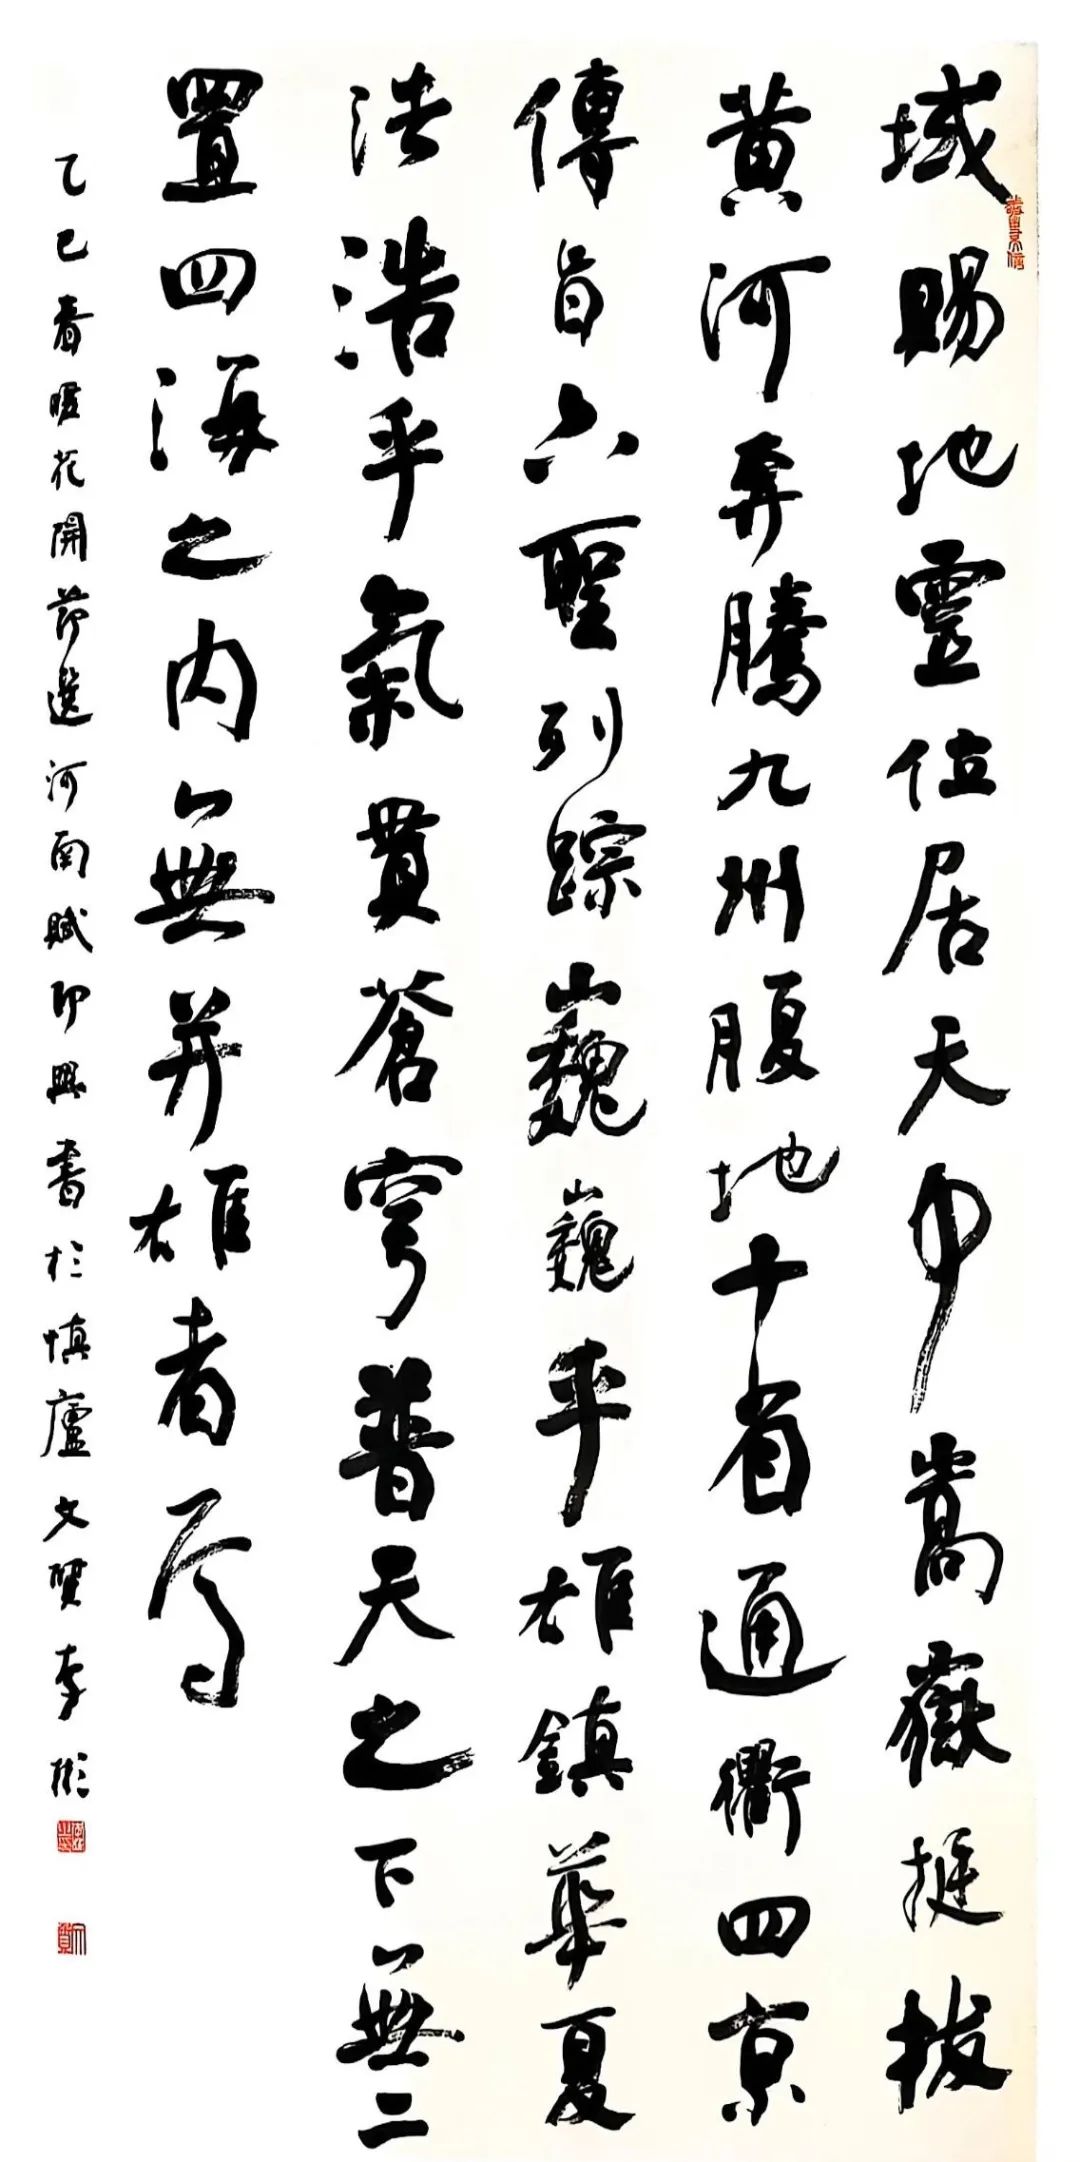 域賜地靈位居天中嵩嶽挺拔
黄河奔騰九州腹地十省通衢四京
傳旨六聖列踪巍巍乎雄鎮華夏
浩浩乎氣貫蒼穹普天之下無二
置四海之内無并雄者焉
乙巳春暖花開節選河南賦即興書於慎廬文質李彬